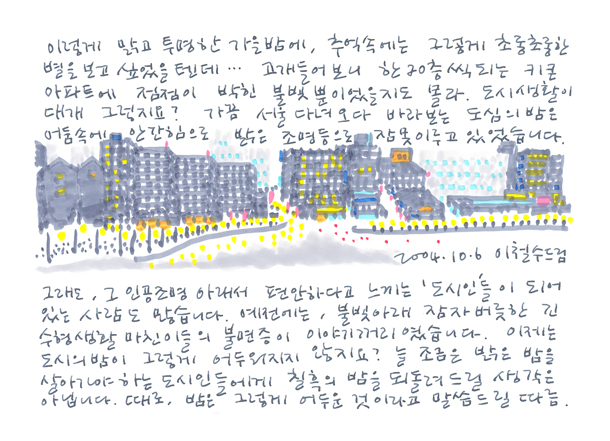 이렇게 맑고 투명한 가을밤에, 추억속에는 그렇게 초롱초롱한
별을 보고 싶었을텐데… 고개들어보니 한 20층씩 되는 키큰
아파트에 점점이 박힌 불빛뿐이었을지도 몰라. 도시생활이
대개 그렇지요? 가끔 서울 다녀오다 바라보는 도심의 밤은
어둠속에 안간힘으로 밝은 조명등으로 잠못이루고 있었습니다.
2004.10.6 이철수드림
그래도, 그 인공조명 아래서 편안하다고 느끼는 '도시인'들이 되어
있는 사람도 많습니다. 예전에는, 불빛아래 잠자버릇한 긴
수형생활 마친이들의 불면증이 이야기거리였습니다. 이제는
도시의 밤이 그렇게 어두워지지 않지요? 늘 조금은 밝은 밤을
살아가야 하는 도시인들에게 칠흑의 밤을 되돌려드릴 생각은
아닙니다. 때로, 밤은 그렇게 어두운 것이라고 말씀드릴 따름.